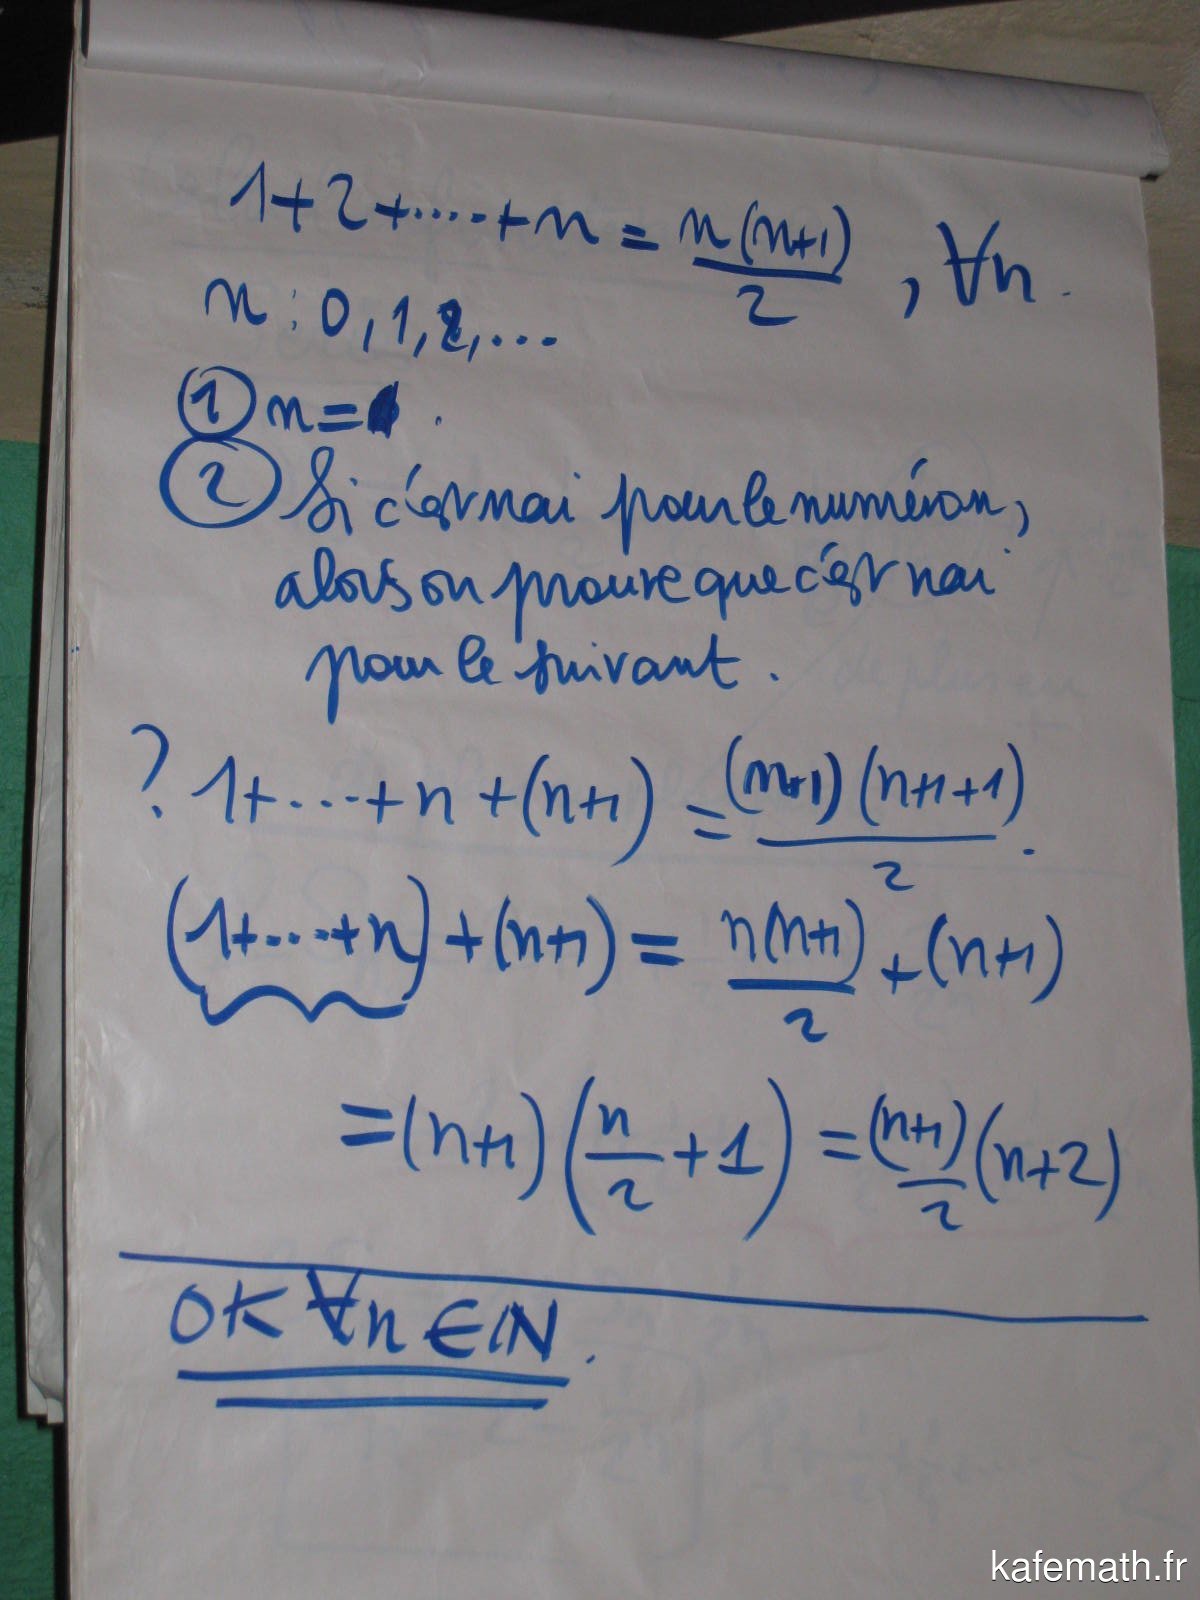 1+2+.....+n = n(n+1)/2 , ∀n.
n : 0, 1, 2, ...
① n =
② Si c'est vrai pour le numéro n,
alors on prouve que c'est vrai
pour le suivant.
? 1+...+n+(n+1) = (n+1)(n+1+1)/2.
(1+...+n)+(n+1) = n(n+1)/2+(n+1)
=(n+1)(n/2+1) = (n+1)/2(n+2)
OK ∀n ∈ ℕ.
kafemath.fr